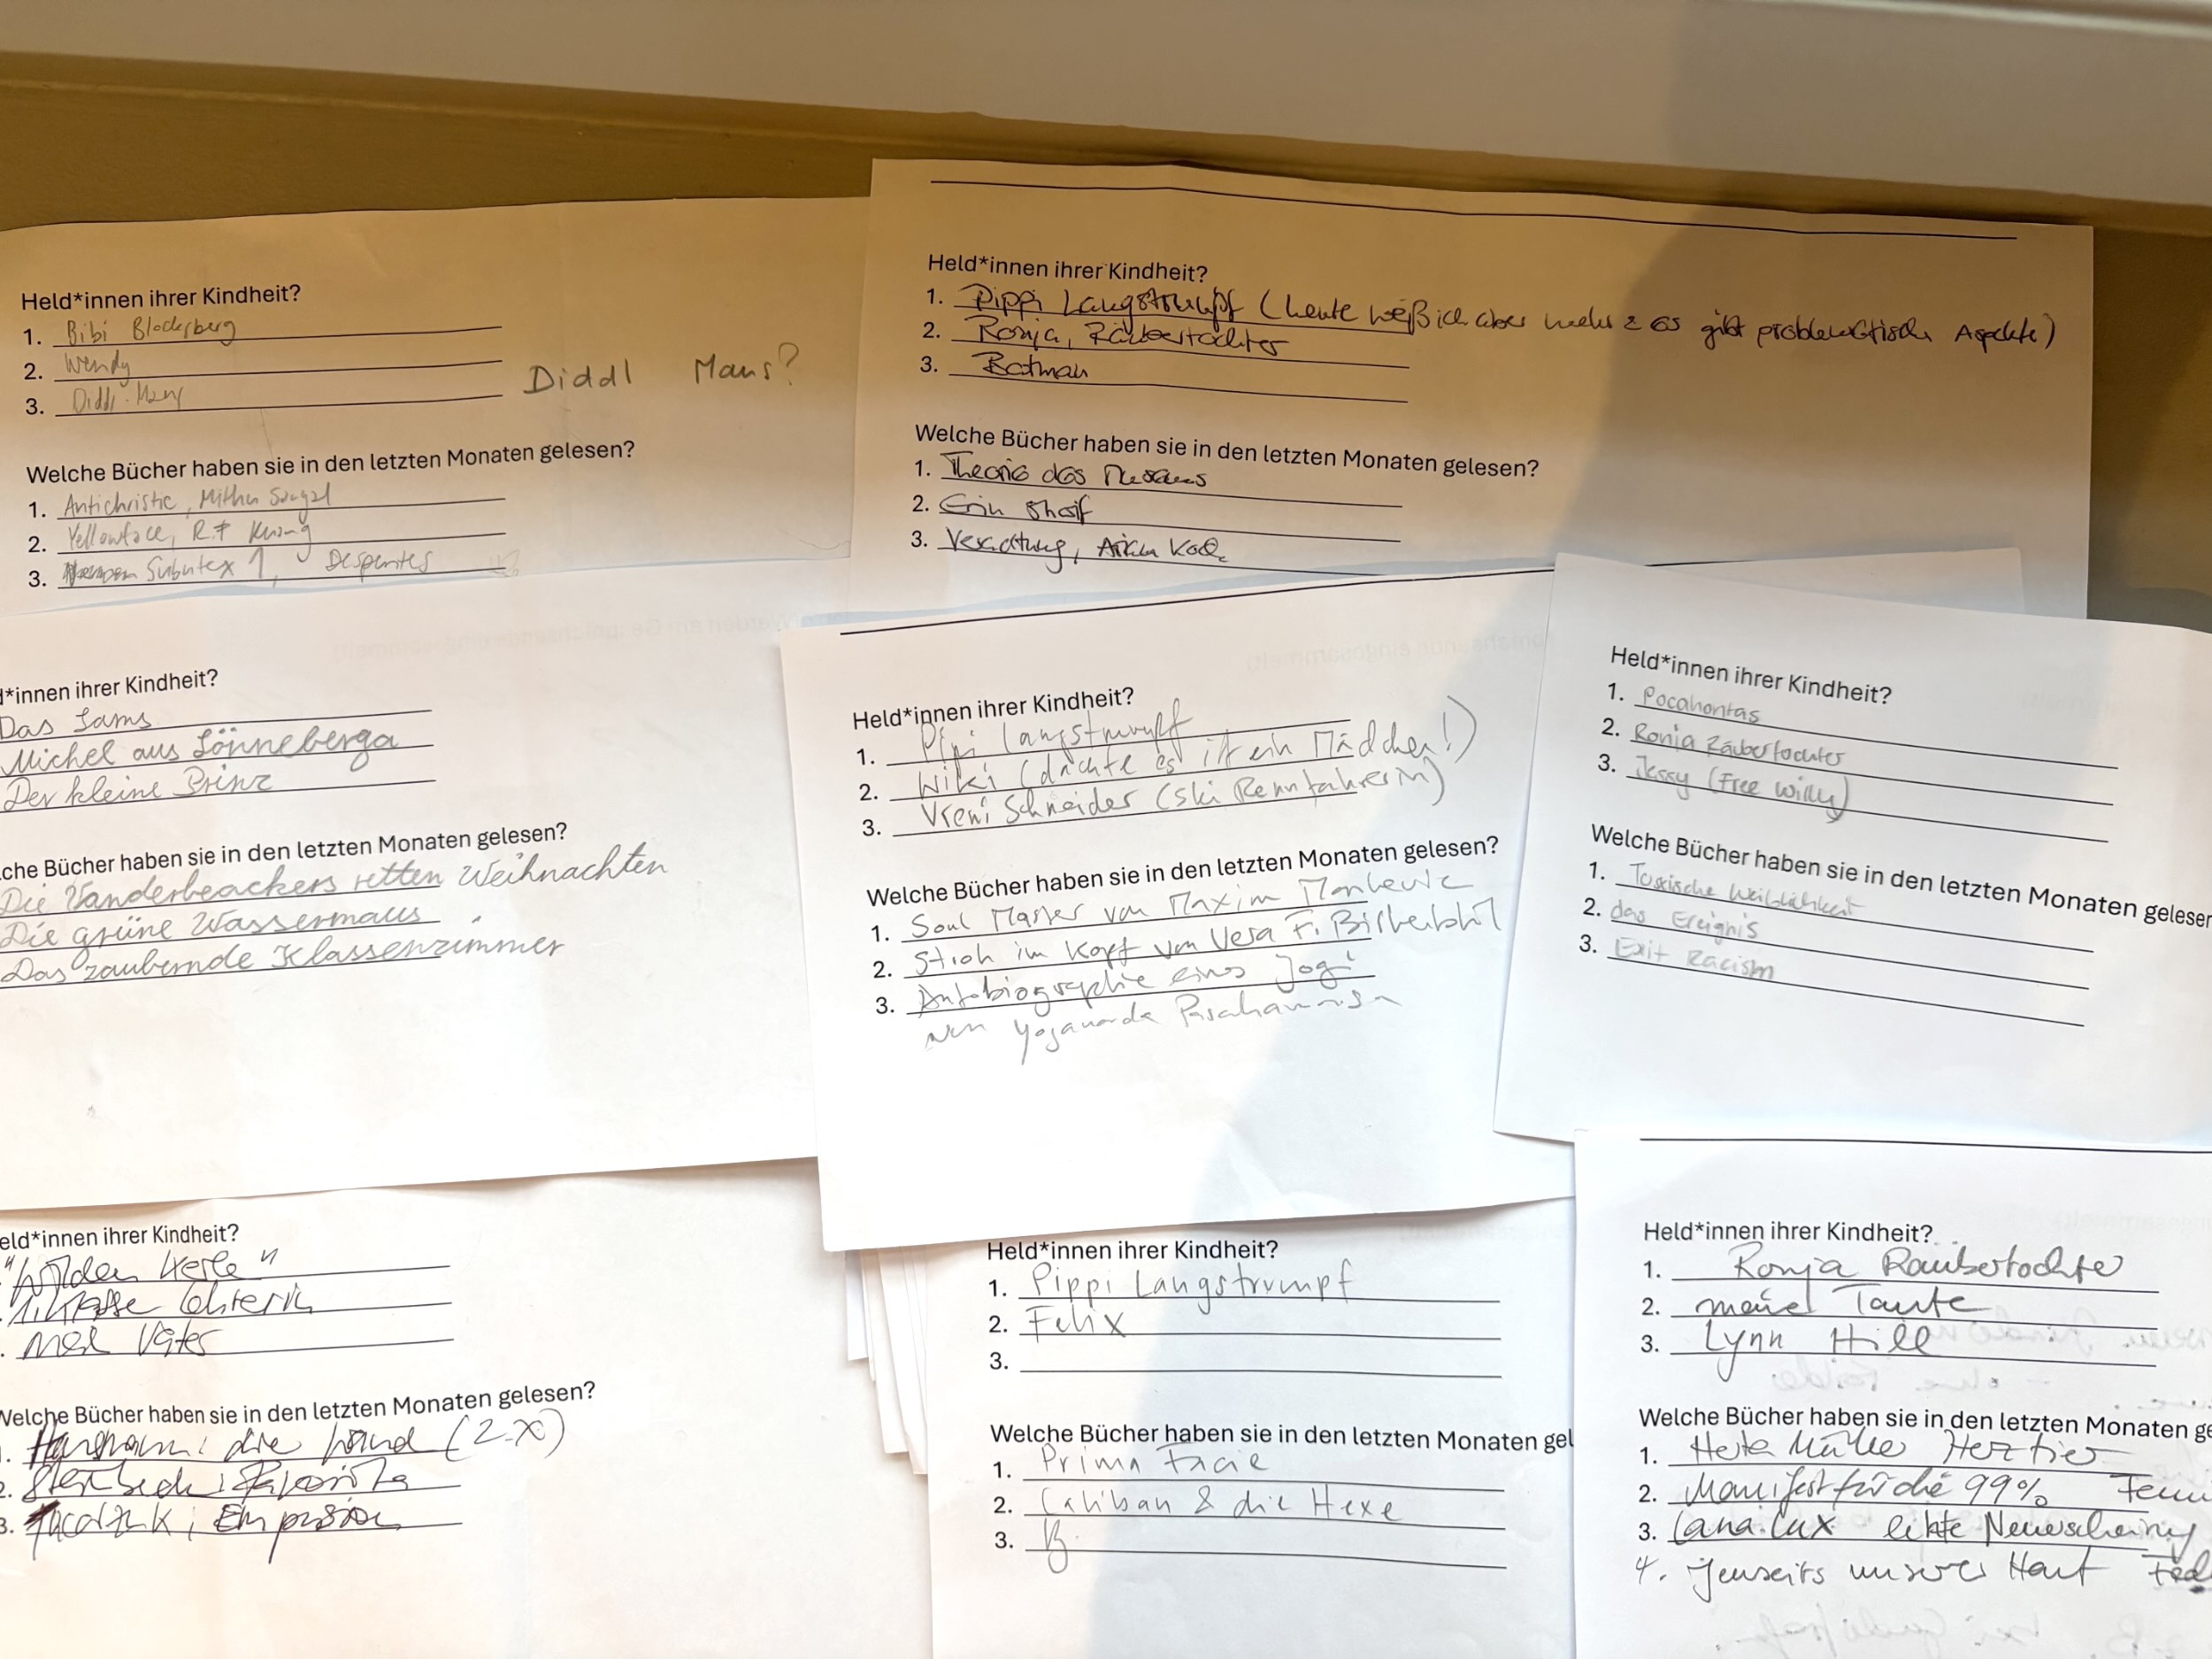 Held*innen ihrer Kindheit?
1. Bibi Blocksberg
2. Wendy
3. Diddl-Maus
Diddl Maus?
Welche Bücher haben sie in den letzten Monaten gelesen?
1. Antichristie, Mithu Sanyal
2. Yellowface, R.F Kuang
3. Subutex 1, Despentes
Held*innen ihrer Kindheit?
1. Pippi Langstrumpf (heute weiß ich aber mehr & es gibt problematische Aspekte)
2. Ronja, Räubertochter
3. Batman
Welche Bücher haben sie in den letzten Monaten gelesen?
1. Theorie des
2.
3. Verachtung,
d*innen ihrer Kindheit?
Das Sams
Michel aus Lönneberga
Der kleine Prinz
che Bücher haben sie in den letzten Monaten gelesen?
Die Vanderbeackers retten Weihnachten
Die grüne Wassermaus
Das zaubernde Klassenzimmer
Held*innen ihrer Kindheit?
1. Pipi Langstrumpf
2. Wiki (dachte es ist ein Mädchen!)
3. Vreni Schneider (Ski Rennfahrerin)
Welche Bücher haben sie in den letzten Monaten gelesen?
1. Soul Master von Maxim Mankevic
2. Stroh im Kopf von Vera F. Birkenbihl
3. Autobiographie eines Jogi
von Yogananda
Held*innen ihrer Kindheit?
1. Pocahontas
2. Ronja Räubertochter
3. Jessy (Free Willy)
Welche Bücher haben sie in den letzten Monaten gelesen
1. Toxische Weiblichkeit
2. das Ereignis
3. Exit Racism
eld*innen ihrer Kindheit?
"wilden Kerle"
1. Klasse Lehrerin
mein Vater
Welche Bücher haben sie in den letzten Monaten gelesen?
1. Haushofer: die Wand (2x)
2.
3. Tocarzuk, Empusion
Held*innen ihrer Kindheit?
1. Pippi Langstrumpf
2. Felix
3.
Welche Bücher haben sie in den letzten Monaten gel
1. Prima Facie
2. Caliban & die Hexe
3.
Held*innen ihrer Kindheit?
1. Ronja Räubertochter
2. meine Tante
3. Lynn Hill
Welche Bücher haben sie in den letzten Monaten ge
1. Herta Müller Herztier
2. Manifest für die 99% Femi
3. Lana Lux letzte Neuerscheinung
4. jenseits unserer Haut